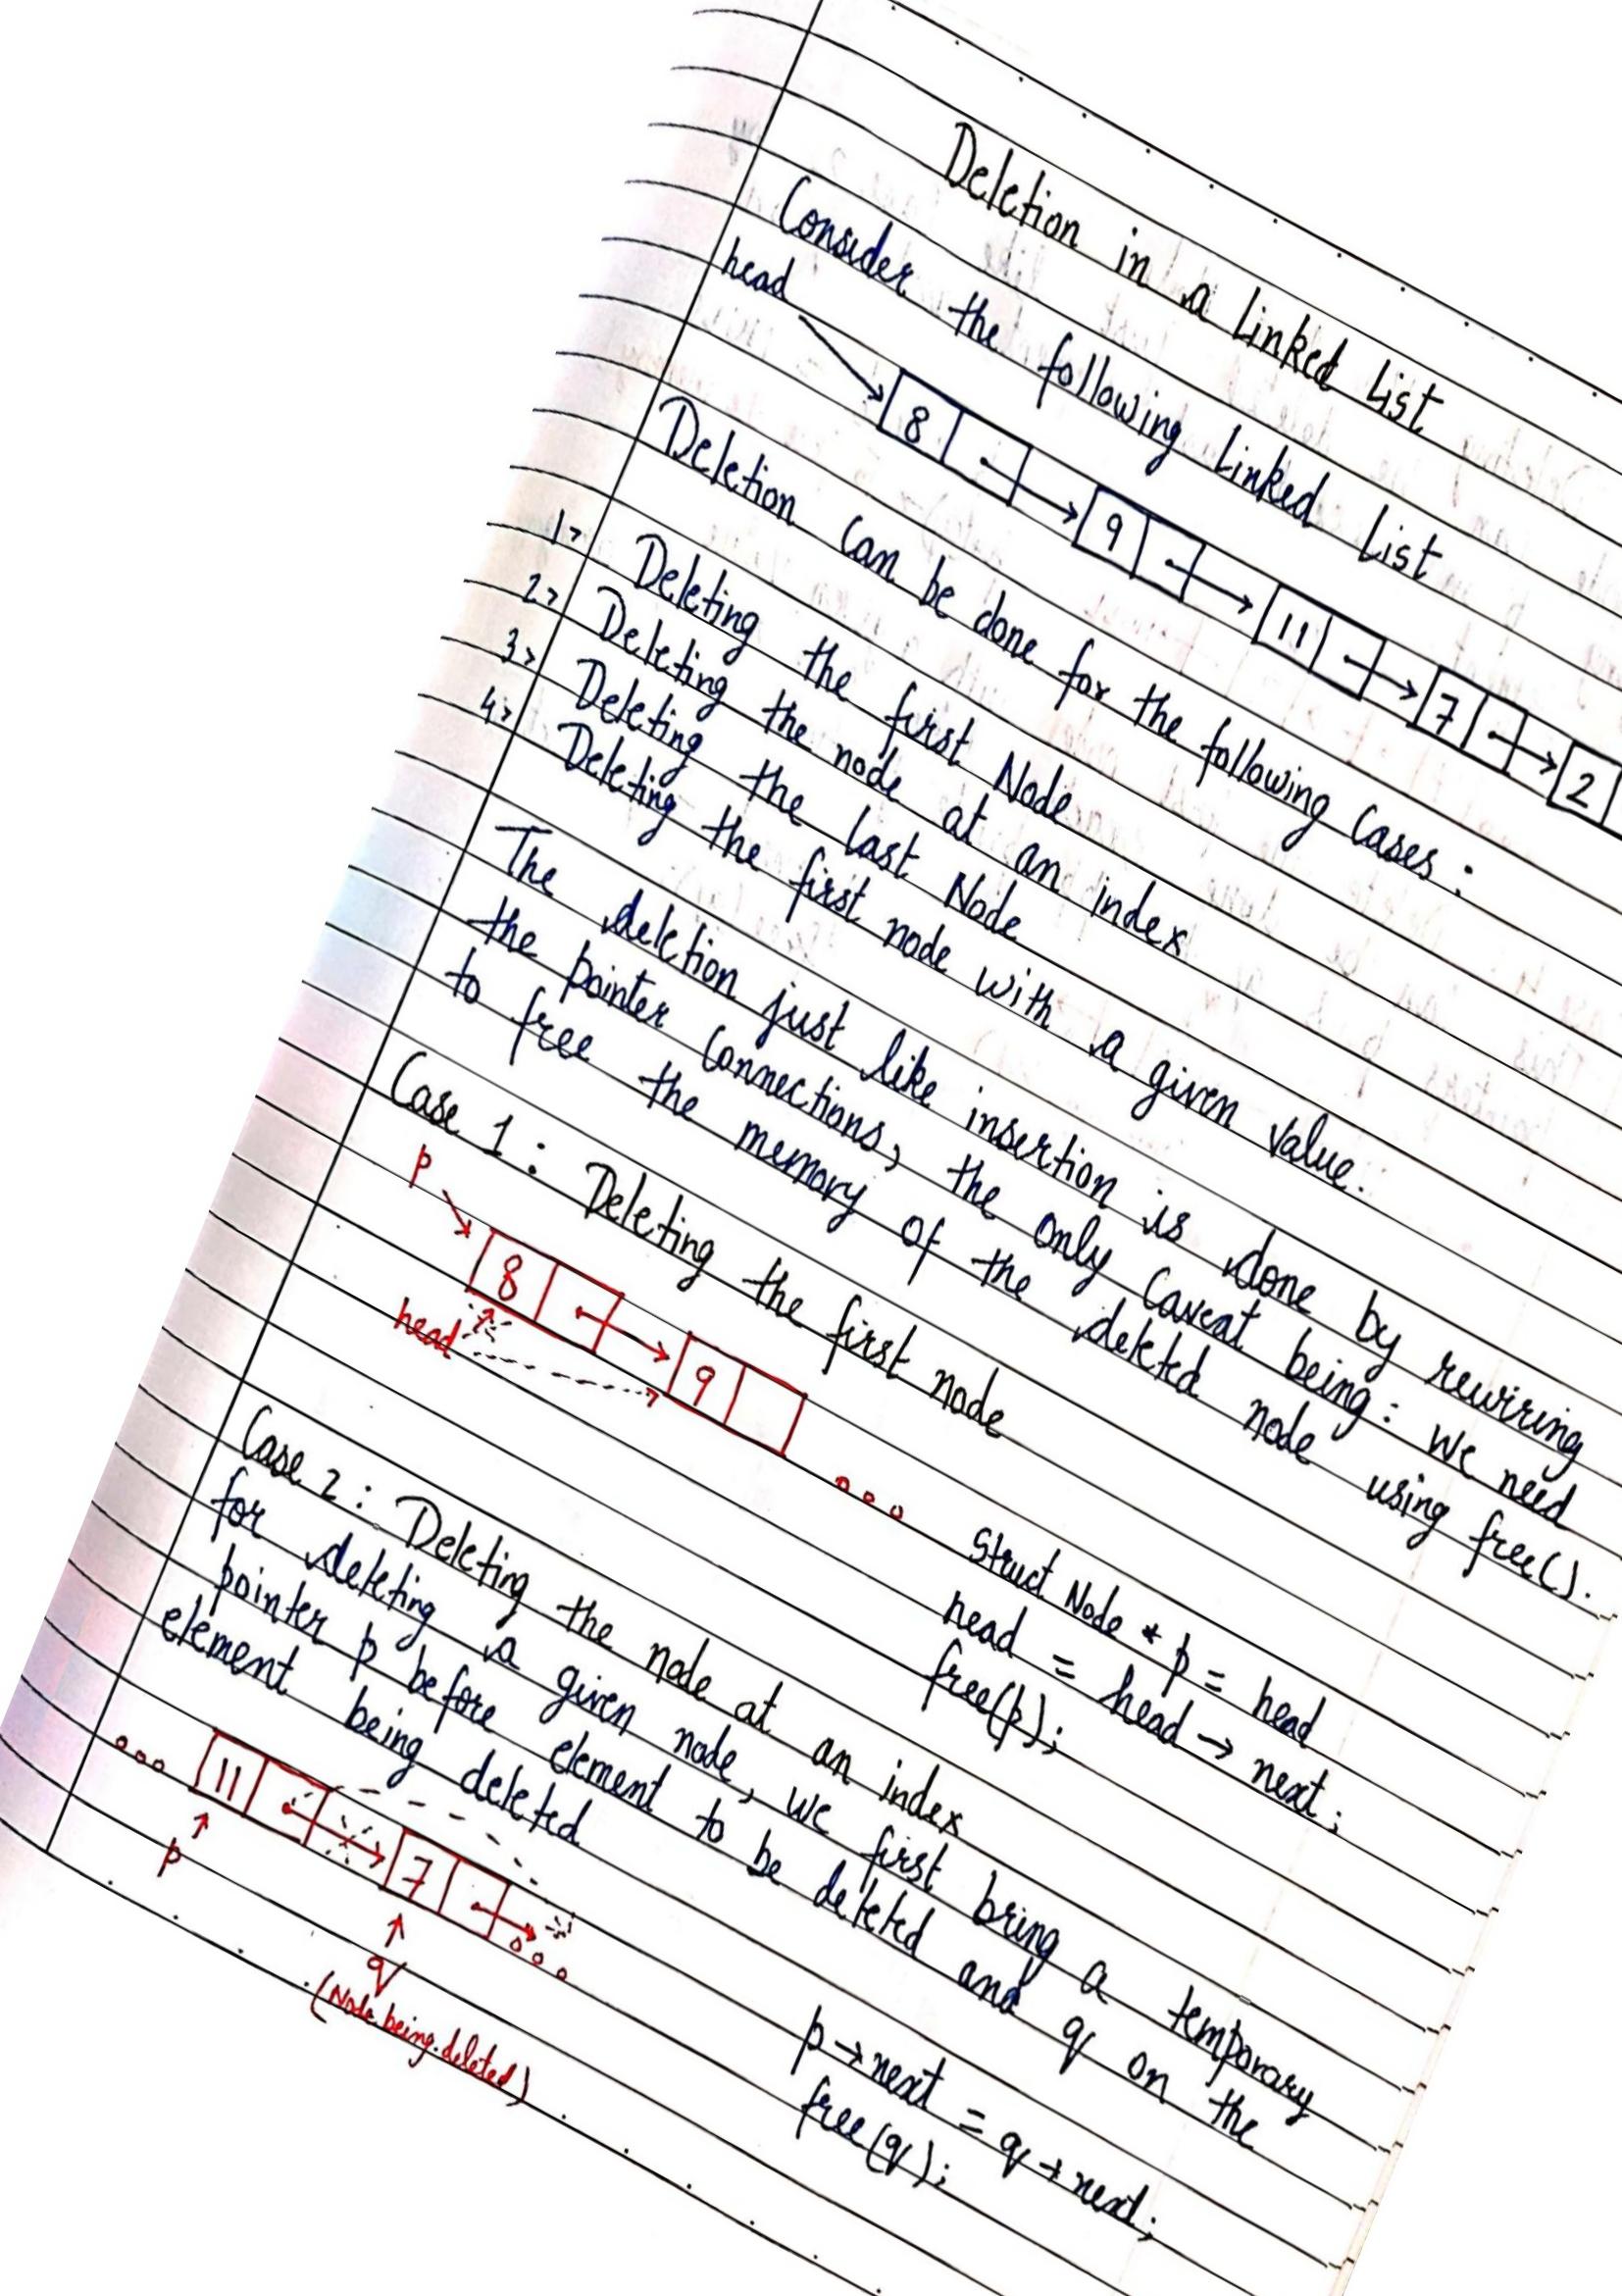 Deletion in a Linked List
Consider the following Linked List
head
8 9 11 7 2
Deletion can be done for the following cases:
1> Deleting the first Node
2> Deleting the node at an index
3> Deleting the last Node
4> Deleting the first node with a given value.
The deletion just like insertion is done by rewiring
the pointer connections, the only caveat being: we need
to free the memory of the deleted node using free().
Case 1: Deleting the first node
p
8 9
head
Struct Node * p = head
head = head → next;
free(p);
Case 2: Deleting the node at an index
for deleting a given node, we first bring a temporary
pointer p before element to be deleted and q on the
element being deleted
11 7
p
q
(Node being deleted)
p → next = q → next;
free(q);